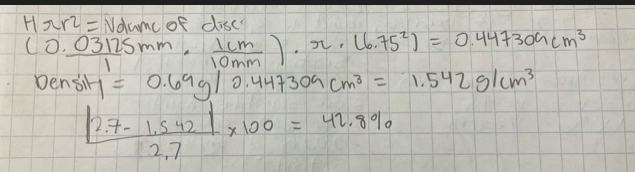 Hπr² = Volume of disc:
(0.03125mm/1 · 1cm/10mm) · π · (6.75²) = 0.447309cm³
Density = 0.69g/0.447309cm³ = 1.542g/cm³
|2.7 - 1.542|/2.7 x 100 = 42.8%